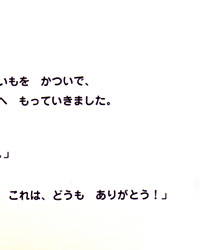 いもを　かついで、
へ　もっていきました。
」
これは、どうも　ありがとう！」